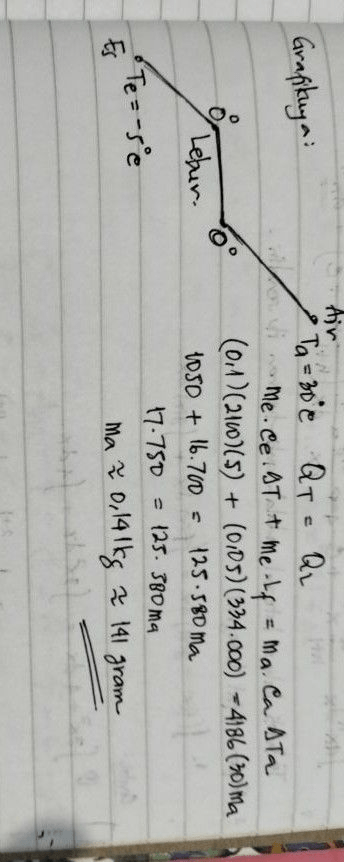 Grafiknya:
Air
Ta = 30°C
0°
0°
Lebur.
Es Te = -5°C
QT = QL
Me.Ce.ΔT + Me.Lf = Ma.Ca ΔTa
(0,1)(2100)(5) + (0,05)(334.000) = 4186(30)Ma
1050 + 16.700 = 125.580Ma
17.750 = 125.580Ma
Ma ≈ 0,141kg ≈ 141 gram